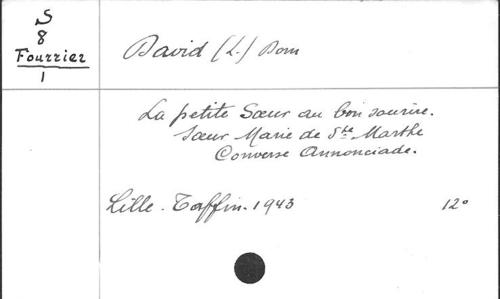 S
8
Fourrier
1
David (L.) Dom
La petite Sœur au bon sourire.
Sœur Marie de Ste Marthe
Converse Annonciade.
Lille. Taffin. 1943 12°